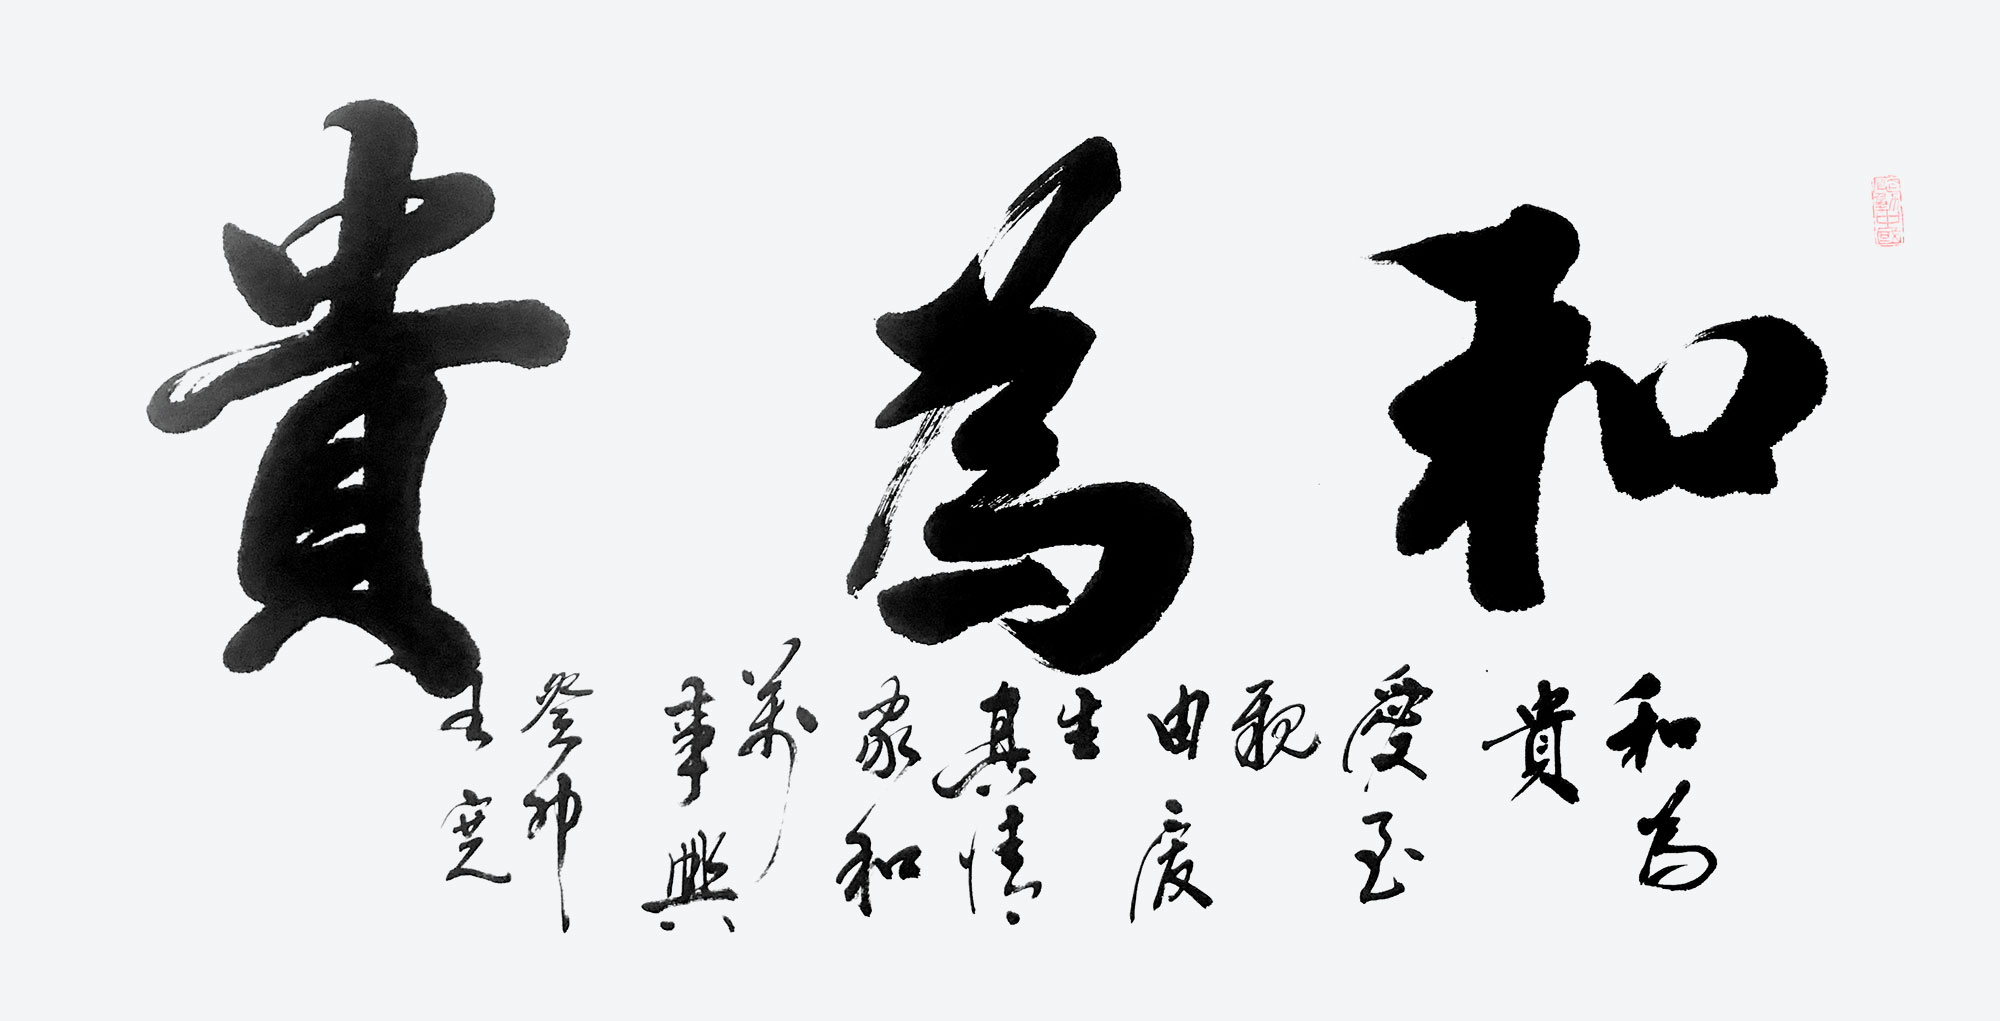 和為貴
和為
貴
愛至
親
由
生
真情
家和
萬
事興
癸卯
王寬
中國